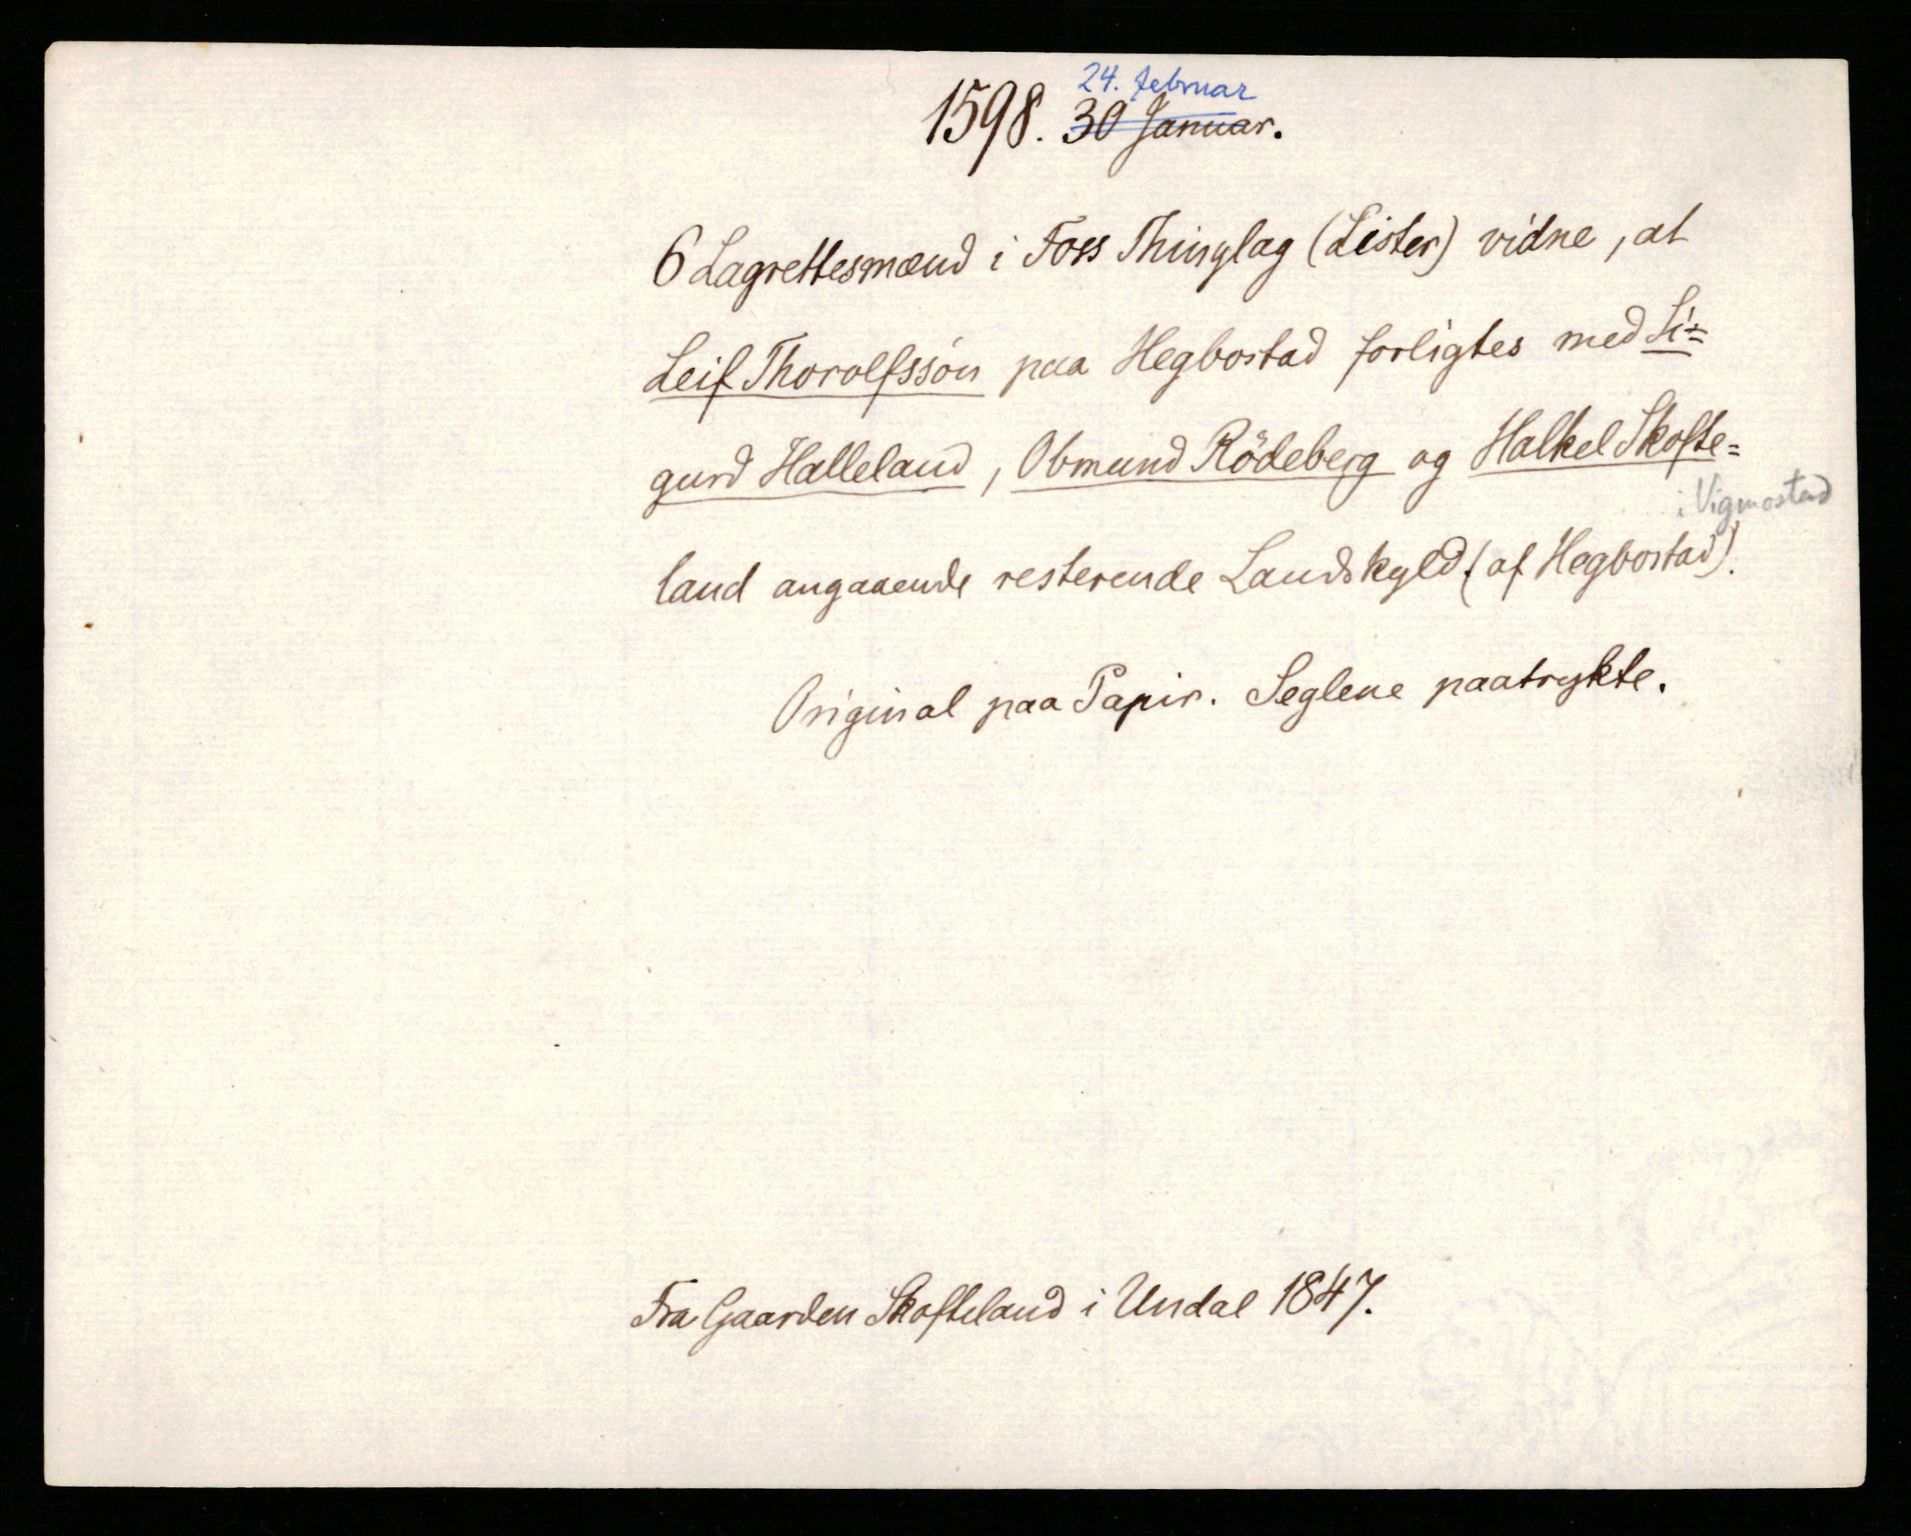 24. februar
1598. 30 Januar.
6 Lagrettesmænd i Foss Thinglag (Lister) vidne, at
Leif Thorolfssön paa Hegbostad forligtes med Si=
gurd Halleland, Obmund Rödeberg og Halkel Skofte=
i Vigmostad
land angaaende resterende Landskyld (af Hegbostad).
Original paa Papir. Seglene paatrykte.
Fra Gaarden Skofteland i Undal 1847.